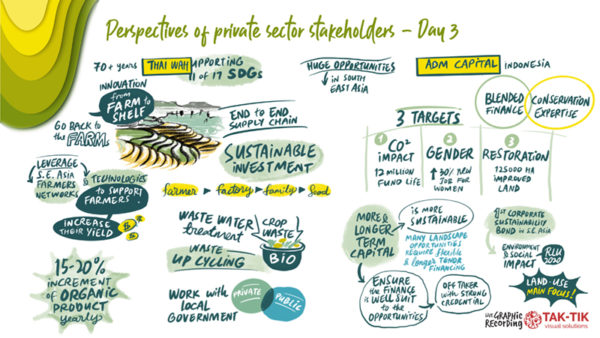 Perspectives of private sector stakeholders – Day 3
70+ years
THAI WAH
SUPPORTING
of 17 SDGs
INNOVATION
from
FARM to
SHELF
GO BACK to
the FARM
END to END
SUPPLY CHAIN
SUSTAINABLE
INVESTMENT
LEVERAGE
S.E. ASIA
FARMERS
NETWORKS
& TECHNOLOGIES
to SUPPORT
FARMERS
INCREASE
THEIR YIELD
farmer
factory
family
food
WASTE WATER
treatment
WASTE
UP CYCLING
CROP
WASTE
BIO
15-20%
INCREMENT
of ORGANIC
PRODUCT
yearly
WORK with
LOCAL
GOVERNMENT
PRIVATE
PUBLIC
HUGE OPPORTUNITIES
in SOUTH
EAST ASIA
ADM CAPITAL
INDONESIA
BLENDED
FINANCE
CONSERVATION
EXPERTISE
3 TARGETS
1
CO2
IMPACT
12 MILLION
FUND LIFE
2
GENDER
30% NEW
JOB FOR
WOMEN
3
RESTORATION
125000 HA
IMPROVED
LAND
MORE &
LONGER
TERM
CAPITAL
is MORE
SUSTAINABLE
MANY LANDSCAPE
OPPORTUNITIES
REQUIRE flexible
& longer TENOR
FINANCING
ENSURE
the FINANCE
is WELL SUIT
to the
OPPORTUNITIES
OFF TAKER
WITH STRONG
CREDENTIAL
1st CORPORATE
SUSTAINABILITY
BOND in S.E. ASIA
ENVIRONMENT
& SOCIAL
IMPACT
RLU
2020
LAND-USE
MAIN FOCUS!
LIVE GRAPHIC
RECORDING
TAK-TIK
visual solutions